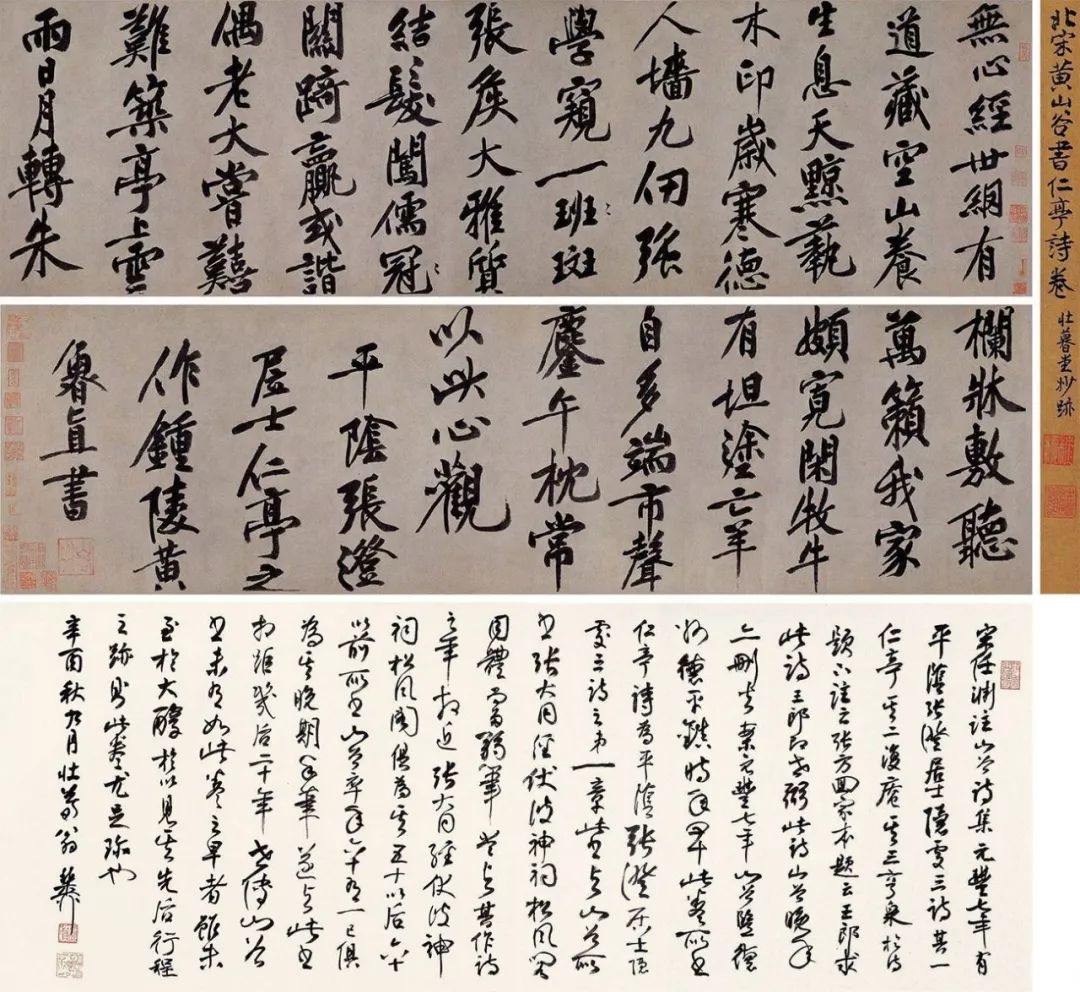 北宋黄山谷書仁亭詩卷 壯暮堂妙跡
無心經世網有
道藏空山養
生息天黥蓺
木印歲寒德
人墻九仞强
學窺一班斑
張侯大雅質
結髮闖儒冠
關踦贏或諧
偶老大嘗艱
難築亭上雲
雨日月轉朱
欄牀敷聽
萬籟我家
頗寬閑牧牛
有坦塗亡羊
自多端市聲
鏖午枕常
以此心觀
平陰張澄
居士仁亭之
作鍾陵黄
魯直書
宋任淵注山谷詩集元豐七年有
平陰張澄居士隱處三詩其一
仁亭其二復庵其三亨泉於詩
題下注云張方回家本題云王郎求
此詩王郎名世弼此詩山谷晚年
亦刪去案元豐七年山谷監德
州德平鎮時年四十此卷所書
仁亭詩為平陰張澄居士隱
處三詩之第一章此書與山谷所
書張大同經伏波神祠松風閣
同體而筆與其作詩
之年相近張大同經伏波神
祠松風閣俱為其五十以后六十
以前所書山谷卒年六十有一已俱
為其晚期之筆與此書
相距幾后二十年世傳山谷
書未有如此卷之早者雖未
至於大醇於以見其先后行程
之跡則此卷尤足珍也
辛酉秋九月壯暮翁稚柳